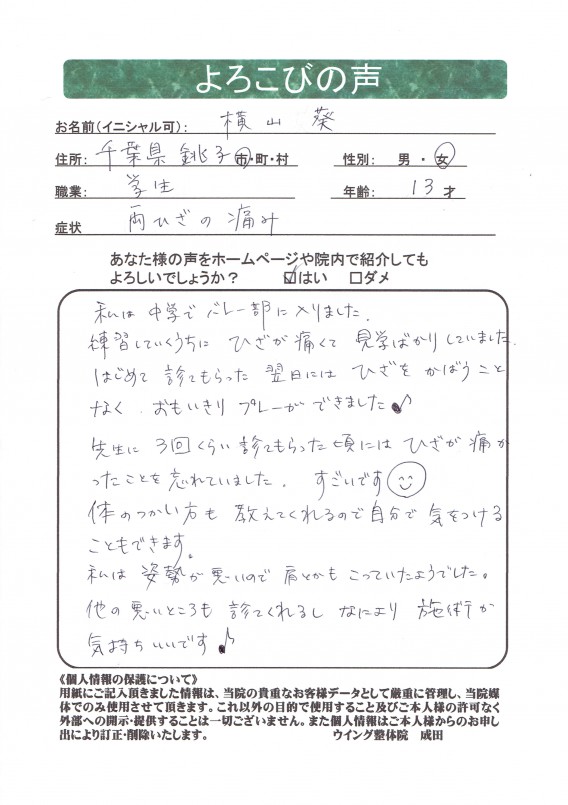 よろこびの声
お名前(イニシャル可): 横山 葵
住所: 千葉県 銚子市・町・村 性別: 男・女
職業: 学生 年齢: 13才
症状 両ひざの痛み
あなた様の声をホームページや院内で紹介しても
よろしいでしょうか? ☑はい □ダメ
私は中学でバレー部に入りました。
練習していくうちに ひざが痛くて 見学ばかりしていました。
はじめて 診てもらった 翌日には ひざを かばうこと
なく おもいきり プレーができました♪
先生に 3回くらい診てもらった頃には ひざが痛か
ったことを忘れていました。 すごいです☺
体のつかい方も 教えてくれるので自分で気をつける
こともできます。
私は 姿勢が悪いので 肩とかもこっていたようでした。
他の悪いところも 診てくれるし なにより 施術が
気持ちいいです♪
《個人情報の保護について》
用紙にご記入頂きました情報は、当院の貴重なお客様データとして厳重に管理し、当院媒
体でのみ使用させて頂きます。これ以外の目的で使用すること及びご本人様の許可なく
外部への開示・提供することは一切ございません。また個人情報はご本人様からのお申し
出により訂正・削除いたします。 ウイング整体院 成田